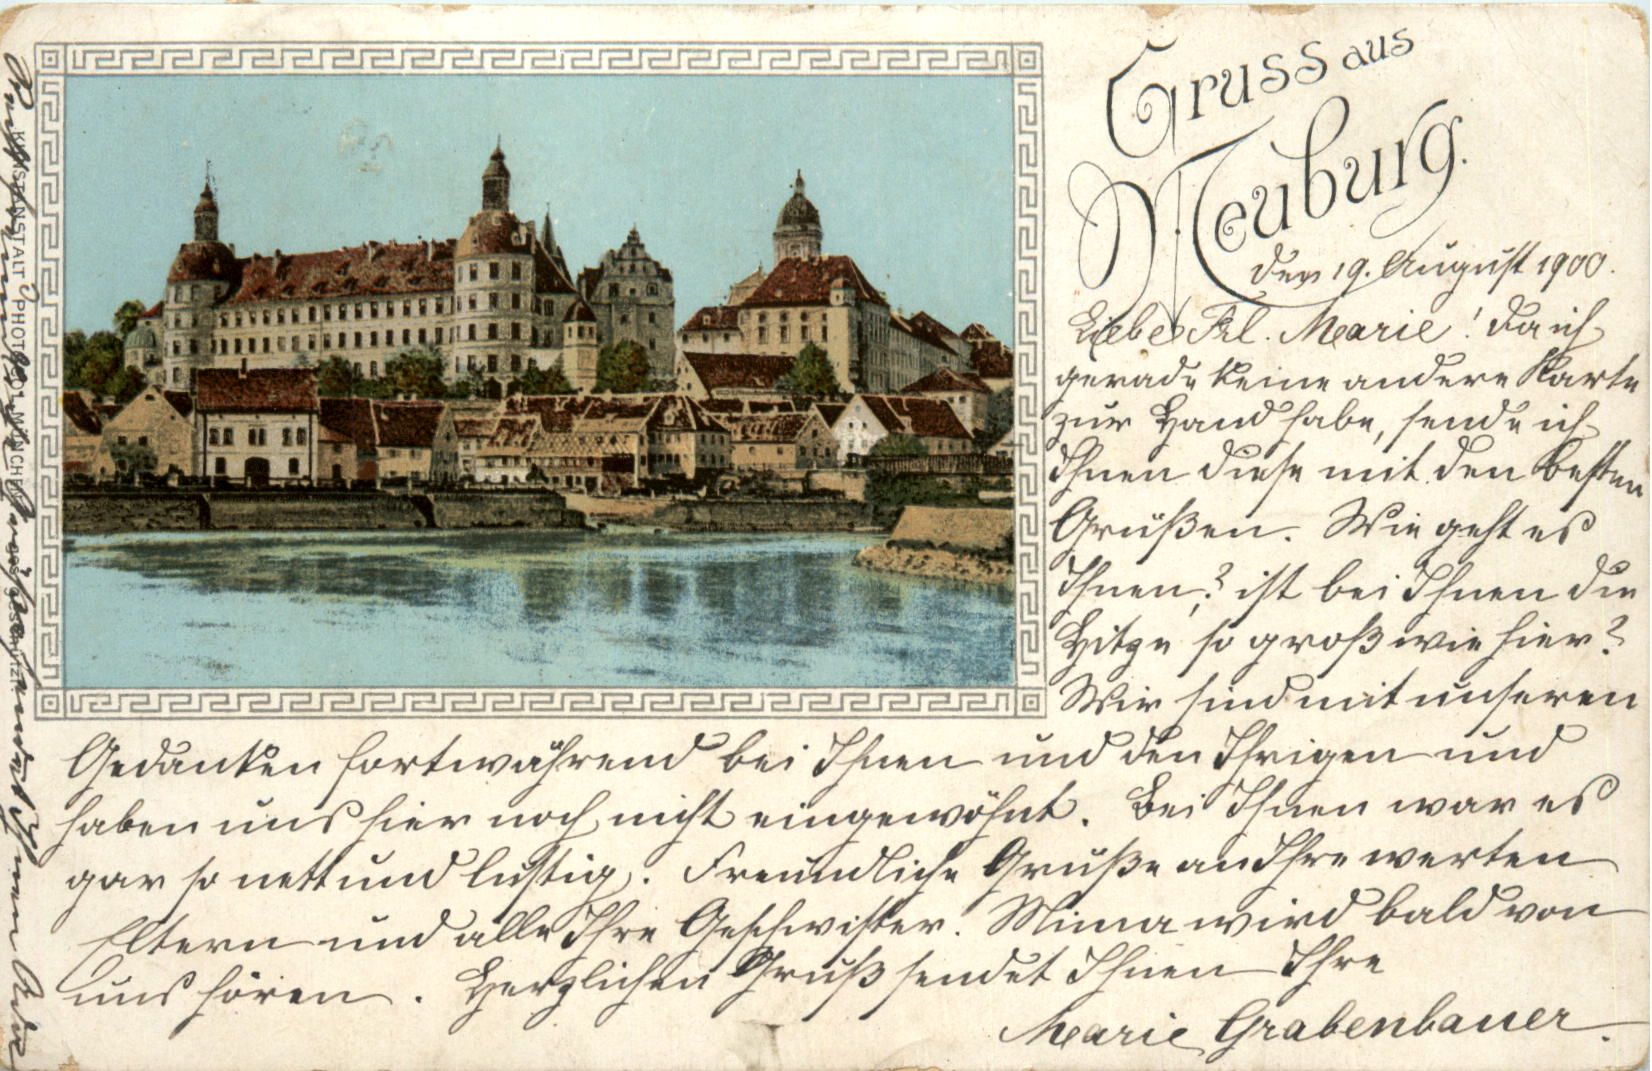 Gruss aus
Neuburg.
den 19. August 1900.
Liebe Frl. Marie! Da ich
gerade keine andere Karte
zur Hand habe, sende ich
Ihnen diese mit den besten
Grüßen. Wie geht es
Ihnen,? ist bei Ihnen die
Hitze so groß wie hier?
Wir sind mit unseren
Gedanken fortwährend bei Ihnen und den Ihrigen und
haben uns hier noch nicht eingewöhnt. Bei Ihnen war es
gar so nett und lustig. Freundliche Grüße an Ihre werten
Eltern und alle Ihre Geschwister. Mima wird bald von
uns hören. Herzlichen Gruß sendet Ihnen Ihre
Marie Grabenbauer.
KUNSTANSTALT PHOT MÜNCHEN GES. GESCHÜTZT.
Grüße sendet Ihnen